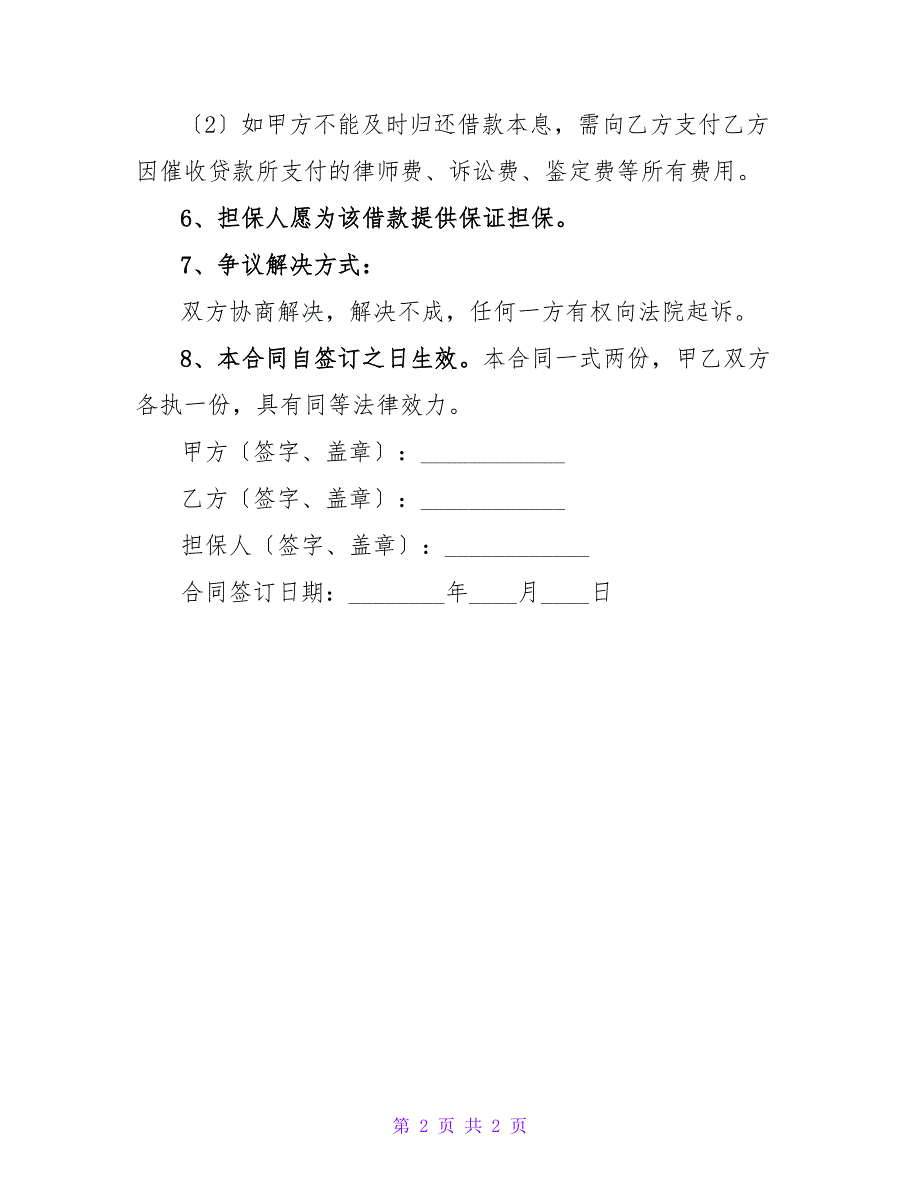 〔2〕如甲方不能及时归还借款本息，需向乙方支付乙方
因催收贷款所支付的律师费、诉讼费、鉴定费等所有费用。
6、担保人愿为该借款提供保证担保。
7、争议解决方式：
双方协商解决，解决不成，任何一方有权向法院起诉。
8、本合同自签订之日生效。本合同一式两份，甲乙双方
各执一份，具有同等法律效力。
甲方〔签字、盖章〕：____________
乙方〔签字、盖章〕：____________
担保人〔签字、盖章〕：____________
合同签订日期：________年____月____日
第 2 页 共 2 页